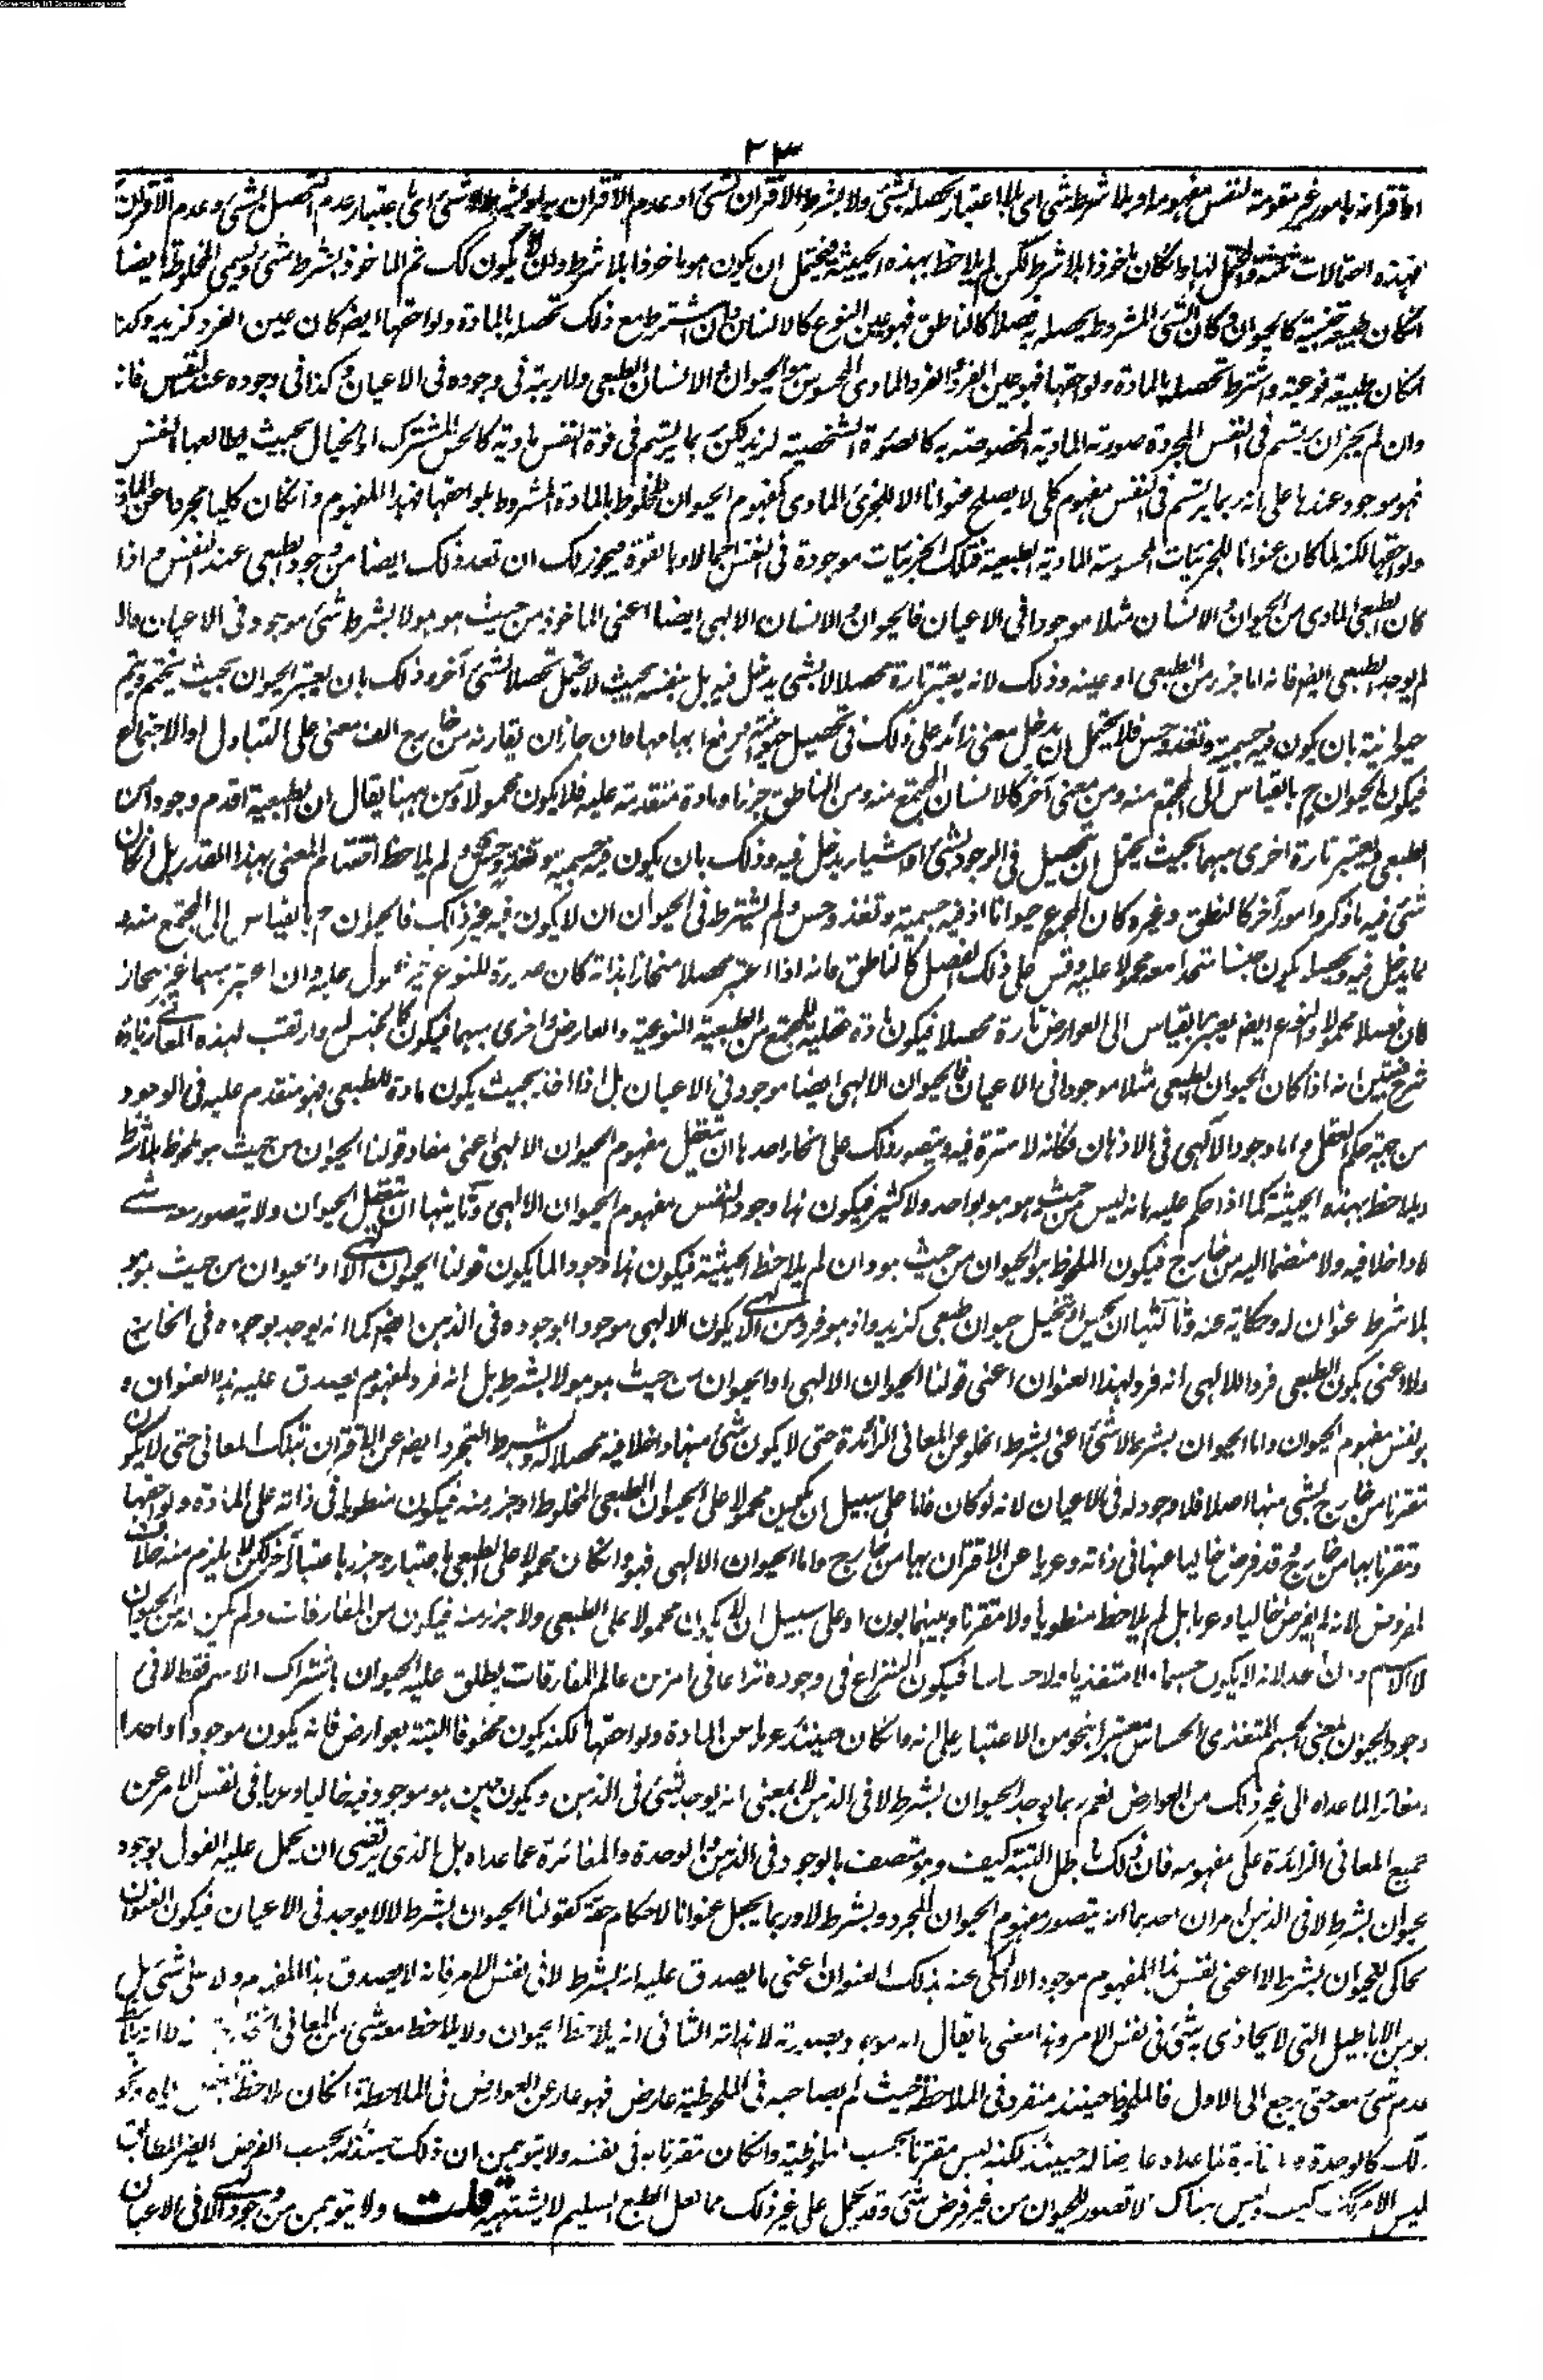 ٢٣
او اقترانه بامور غير مقومة لنفس مفهومه او بلا شرط شئ اى بلا اعتبار تحصله بشئ ولا بشرط الاقتران بشئ او عدم الاقتران به او بشرط لا شئ اى باعتبار عدم التحصل بشئ وعدم الاقتران
فهذه احتمالات ثلثة كان ماخوذا بلا شرط لكن لم يلاحظ بهذه الحيثية فيحتمل ان يكون هو ماخوذا بلا شرط وان لا يكون كك ثم الماخوذ بشرط شئ ويسمى المخلوطة ايضا
انكان طبيعة جنسية كالحيوان وكان الشئ المشروط تحصله به فصلا كالناطق فهو عين النوع كالانسان وان اشترط مع ذلك تحصله بالمادة ولواحقها ايضا كان عين الفرد كزيد وكذا
انكان طبيعة نوعية واشترط تحصله بالمادة ولواحقها فهو عين الفرد والفرد المادى المحسوس هو الحيوان والانسان الطبعى ولا ريبة فى وجوده فى الاعيان وكذا فى وجوده عند النفس فانه
وان لم يجز ان يرتسم فى النفس المجردة صورته المادية المخصوصة به كالصورة الشخصية لزيد لكن ربما يرتسم فى قوة النفس مادية كالحس المشترك او الخيال بحيث يطالعها النفس
فهو موجود عندها على انه ربما يرتسم فى النفس مفهوم كلى لا يصلح عنوانا الا للجزئى المادى كمفهوم الحيوان المخلوط بالمادة المشروط بلواحقها فهذا المفهوم وانكان كليا مجردا عن المادة
ولواحقها لكنه لما كان عنوانا للجزئيات المحسوسة المادية الطبيعية فتلك الجزئيات موجودة فى النفس اجمالا وبالقوة فيجوز لك ان تعد ذلك ايضا من وجود الطبعى عند النفس واذا
كان الطبعى المادى من الحيوان والانسان مثلا موجودا فى الاعيان فالحيوان والانسان الالهى ايضا اعنى الماخوذ من حيث هو هو لا بشرط شئ موجود فى الاعيان والا
لم يوجد الطبعى ايضا فانه اما جزء من الطبعى او عينه وذلك لانه يعتبر تارة محصلا لا بشئ يدخل فيه بل بنفسه بحيث لا يحتمل تحصلا بشئ آخر وذلك بان يعتبر الحيوان بحيث يختم ويتم
حيوانية بان يكون فيه جسمية وتغذ وحس فلا يحتمل ان يدخل معنى زائد على ذلك فى تحصيل وان جاز ان يقارنه من خارج الف معنى على التبادل او الاجتماع
فيكون الحيوان ح بالقياس الى المجتمع منه ومن معنى آخر كالانسان المجتمع منه ومن الناطق جزءا ومادة متقدمة عليه فلا يكون محمولا ومن ههنا يقال ان الطبيعية اقدم وجودا من
الطبعى ويعتبر تارة اخرى مبهما بحيث يحتمل ان يتحصل فى الوجود بشئ او اشياء يدخل فيه وذلك بان يكون فيه جسمية وتغذ وحس ولم يلاحظ اختتام المعنى بهذا القدر بل ان كان
شئ فيه ما ذكر وامور آخر كالنطق وغيره كان المجموع حيوانا اذ فيه جسمية وتغذ وحس ولم يشترط فى الحيوان ان لا يكون فيه غير ذلك فالحيوان ح بالقياس الى المجتمع منه و
مما يدخل فيه ويحصله يكون جنسا متحدا معه محمولا عليه وقس على ذلك الفصل كالناطق فانه اذا اعتبر محصلا منحازا بذاته كان صورة للنوع غير محمول عليه وان اعتبر مبهما غير منحاز
كان فصلا محمولا والنوع ايضا يعتبر بالقياس الى العوارض تارة محصلا فيكون مادة عقلية للمجتمع من الطبيعية النوعية والعارض واخرى مبهما فيكون كالجنس وارتقب لهذه المعانى زيادة
شرح فتبين انه اذا كان الحيوان الطبيعى مثلا موجودا فى الاعيان فالحيوان الالهى ايضا موجود فى الاعيان بل اذا اخذ بحيث يكون مادة للطبعى فهو متقدم عليه فى الوجود
من جهة حكم العقل واما وجود الالهى فى الاذهان فكانه لا سترة فيه ويتصور ذلك على انحاء احدها ان يتعقل مفهوم الحيوان الالهى اعنى مفاد قولنا الحيوان من حيث هو ملحوظ بلا شرط
ويلاحظ بهذه الحيثية كما اذا حكم عليه بانه ليس من حيث هو هو بواحد ولا كثير فيكون هذا وجود النفس مفهوم الحيوان الالهى وثانيها ان يتعقل الحيوان ولا يتصور معه شئ
لا داخلا فيه ولا منضما اليه من خارج فيكون الملحوظ هو الحيوان من حيث هو وان لم يلاحظ الحيثية فيكون هذا وجود الما يكون قولنا الحيوان الالهى او الحيوان من حيث هو هو
بلا شرط عنوان له وحكاية عنه وثالثها ان يحس او يتخيل حيوان طبعى كزيد واذ هو فرد من الالهى يكون الالهى موجودا بوجوده فى الذهن ايضا كما انه يوجد بوجوده فى الخارج
ولا اعنى بكون الطبعى فردا للالهى انه فرد لهذا العنوان اعنى قولنا الحيوان الالهى او الحيوان من حيث هو هو لا بشرط بل انه فرد لمفهوم يصدق عليه هذا العنوان و
هو نفس مفهوم الحيوان واما الحيوان بشرط لا شئ اعنى بشرط الخلو عن المعانى الزائدة حتى لا يكون شئ منها داخلا فيه محصلا له وبشرط التجرد ايضا عن الاقتران بتلك المعانى حتى لا يكون
مقترنا من خارج بشئ منها اصلا فلا وجود له فى الاعيان لانه لو كان فاما على سبيل ان يكون محمولا على الحيوان الطبعى المخلوط او جزء منه فيكون منطويا فى ذاته على المادة ولواحقها
ومقترنا بها من خارج وقد فرض خاليا عنها فى ذاته وعريا عن الاقتران بها من خارج واما الحيوان الالهى فهو وانكان محمولا على الطبعى باعتبار وجزءا باعتبار آخر لكن لا يلزم منه خلاف
المفروض لانه لم يفرض خاليا وعريا بل لم يلاحظ منطويا ولا مقترنا وبينهما بون او على سبيل ان لا يكون محمولا على الطبعى ولا جزء منه فيكون من المفارقات ولم يكن له من الحيوان
الا الاسم لانه لا يكون جسما ولا متغذيا ولا حساسا فيكون النزاع فى وجوده نزاعا فى امر من عالم المفارقات يطلق عليه الحيوان باشتراك الاسم فقط لا فى
وجود الحيوان بمعنى الجسم المتغذى الحساس معتبرا بنحو من الاعتبار على انه وانكان حينئذ عريا من المادة ولواحقها لكنه يكون محفوفا البتة بعوارض فانه يكون موجودا واحدا
مغائرا لما عداه الى غير ذلك من العوارض نعم ربما يوجد الحيوان بشرط لا فى الذهن لا بمعنى انه يوجد شئ فى الذهن ويكون حين هو موجود فيه خاليا وعريا فى نفس الامر عن
جميع المعانى الزائدة على مفهومه فان ذلك باطل البتة كيف وهو متصف بالوجود فى الذهن والوحدة والمغائرة عما عداه بل الذى ينبغى ان يحمل عليه القول بوجود
الحيوان بشرط لا فى الذهن امران احدهما انه يتصور مفهوم الحيوان المجرد وبشرط لا وربما يجعل عنوانا لاحكام حقة كقولنا الحيوان بشرط لا لا يوجد فى الاعيان فيكون العنوان
الحاكى للحيوان بشرط لا اعنى نفس هذا المفهوم موجودا لا المحكى عنه بذلك العنوان اعنى ما يصدق عليه انه بشرط لا فى نفس الامر فانه لا يصدق هذا المفهوم على شئ بل
هو من الاباطيل التى لا يحاذى به شئ فى نفس الامر وهذا معنى ما يقال انه موجود بصورته لا بذاته الثانى انه يلاحظ الحيوان ولا يلاحظ معه شئ من المعانى
عدم شئ معه حتى يرجع الى الاول فالملحوظ حينئذ منفرد فى الملاحظة حيث لم يصاحبه فى الملحوظية عارض فهو عار عن العوارض فى الملاحظة
ذلك كالوحدة لما عداه عارضا له حينئذ لكنه ليس مقترنا بحسب الملحوظية وانكان مقترنا به فى نفسه ولا يتوهمن ان ذلك حينئذ له بحسب الفرض الغير المطابق
ليس الامر كذلك كيف وليس هناك الا تصور للحيوان من غير فرض شئ وقد يحمل على غير ذلك مما لعل الطبع السليم لا يشتهيه قلت ولا يتوهمن من وجود الالهى فى الاعيان